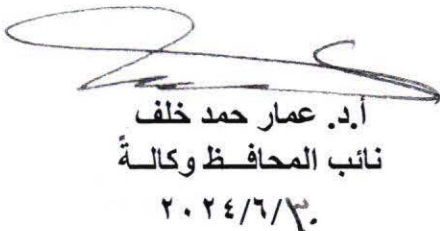 أ.د. عمار حمد خلف
نائب المحافــظ وكالــةً
٢٠٢٤/٦/٣٠